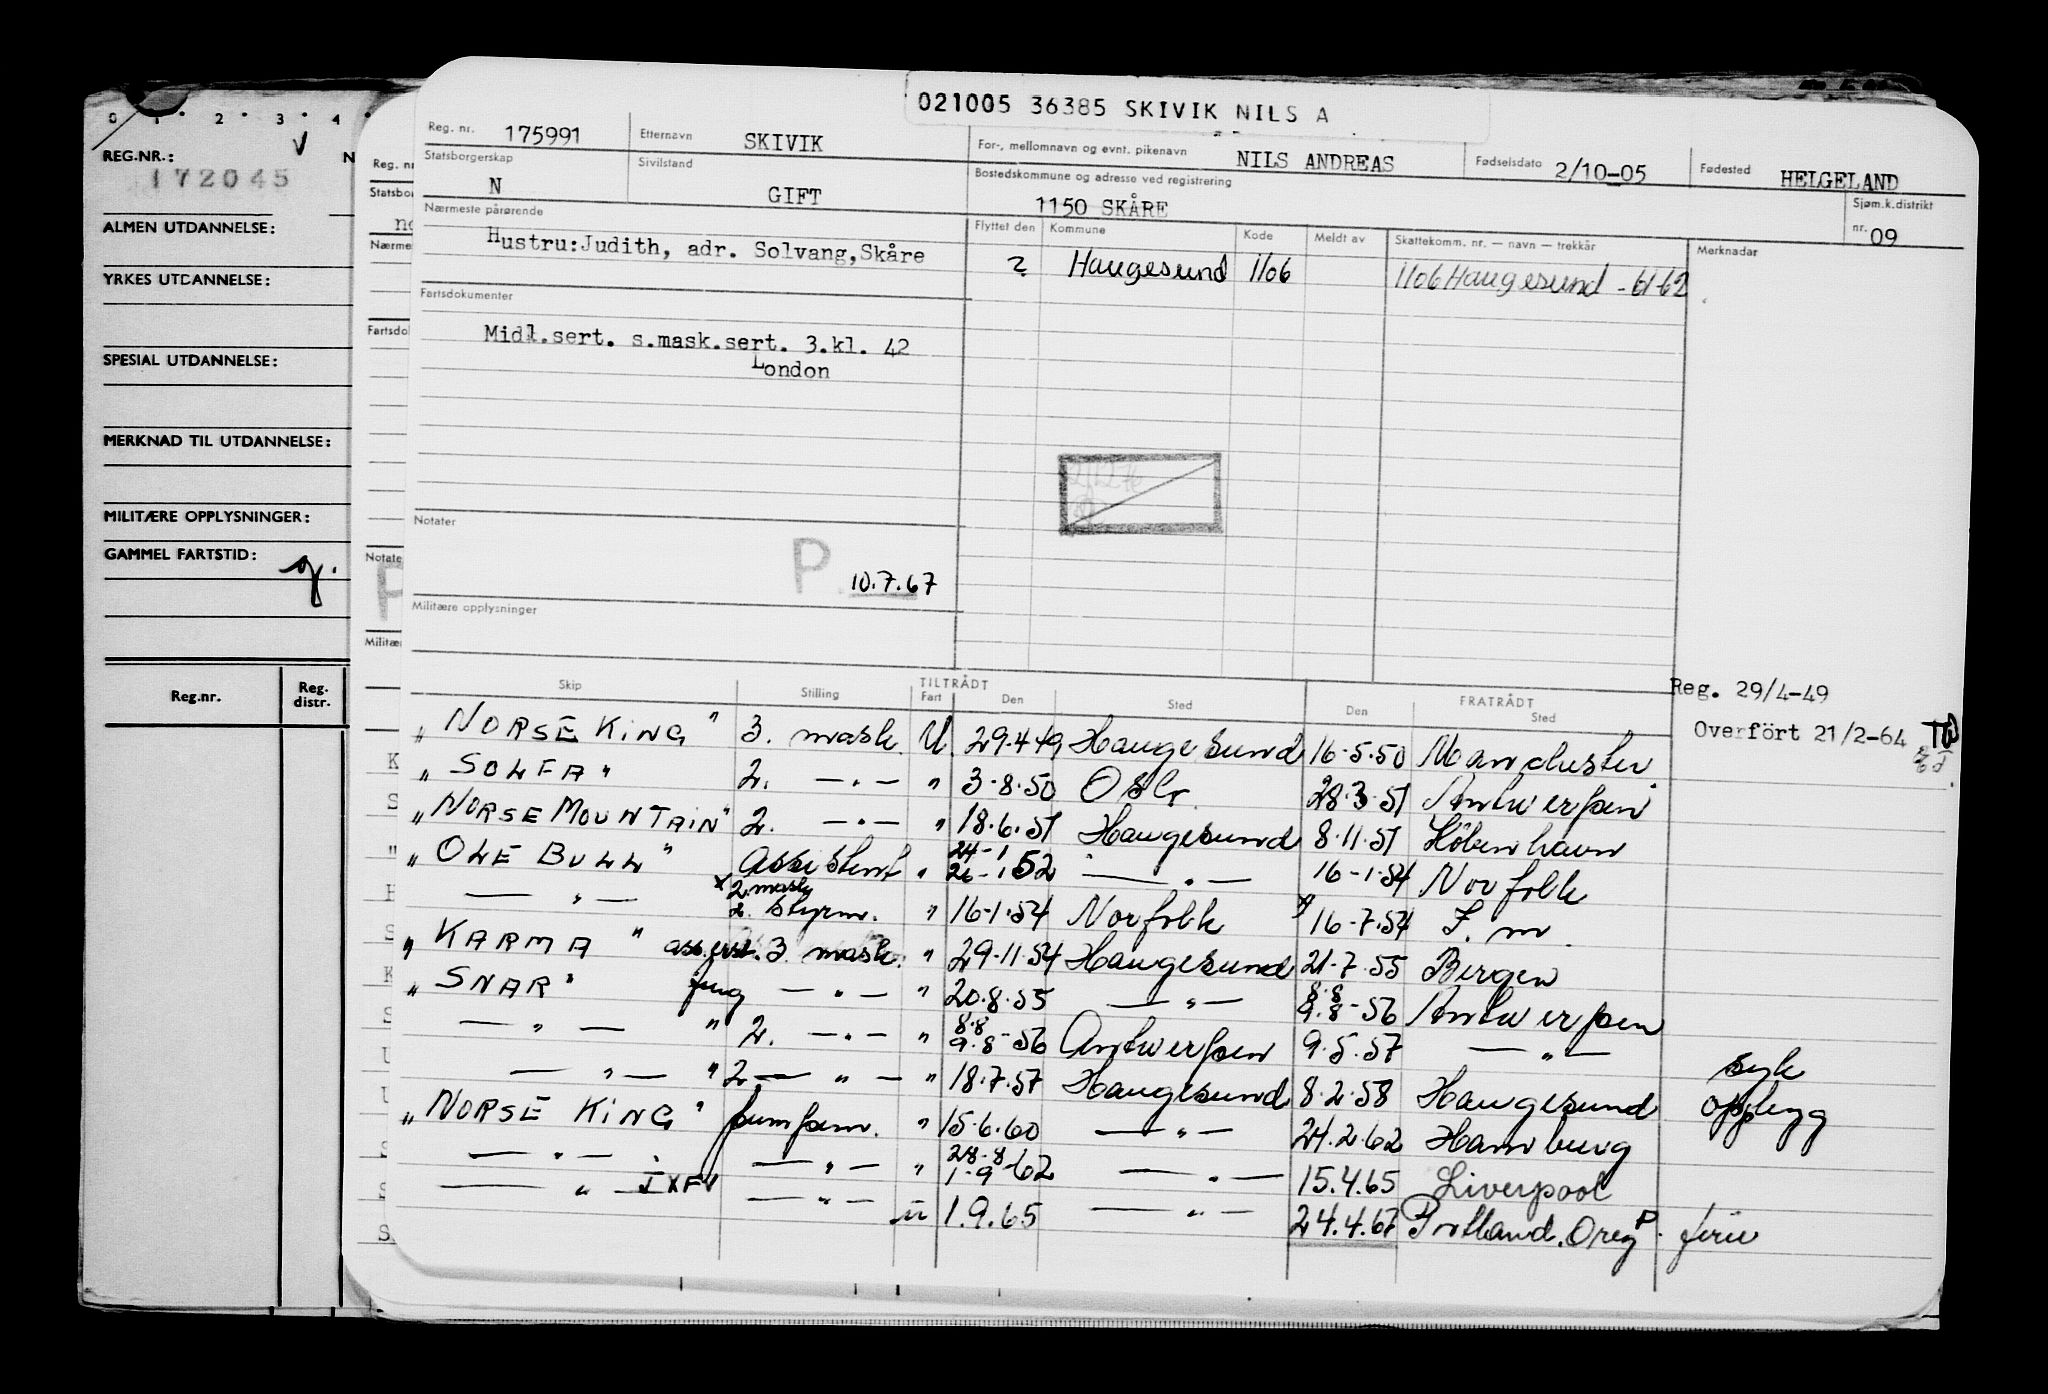 021005 36385 SKIVIK NILS A
Reg. nr. 175991 Etternavn SKIVIK For-, mellomnavn og evnt. pikenavn NILS ANDREAS Fødselsdato 2/10-05 Fødested HELGELAND
Statsborgerskap N Sivilstand GIFT Bostedskommune og adresse ved registrering 1150 SKÅRE Sjøm.k.distrikt nr. 09
Nærmeste pårørende Flyttet den Kommune Kode Meldt av Skattekomm. nr. — navn — trekkår Merknadar
Hustru:Judith, adr. Solvang,Skåre ? Haugesund 1106 1106 Haugesund - 61-62
Fartsdokumenter
Midl.sert. s.mask.sert. 3.kl. 42
London
Notater
P 10.7.67
Militære opplysninger
Reg. 29/4-49
Overfört 21/2-64
Skip Stilling TILTRÅDT Fart Den Sted FRATRÅDT Den Sted
"NORSE KING" 3. mask. U 29.4.49 Haugesund 16-5.50 Manchester
"SOLFA" 2. — " — " 3.8.50 Oslo 28.3.51 Antwerpen
"NORSE MOUNTAIN" 2. — " — " 18.6.51 Haugesund 8.11.51 Köbenhavn
"OLE BULL" Assistent " 24-1 26-1 52 — " — 16-1.54 Norfolk
— " — x 2. mask 2. styrm. " 16-1.54 Norfolk 16-7.54
"KARMA" ass. 3. mask. " 29.11.54 Haugesund 21.7.55 Bergen
"SNAR" — " — " 20.8.55 — " — 8.8 9.8-56 Antwerpen
— " — " 2. — " — " 8.8 9.8-56 Antwerpen 9.5.57 — " — syk
— " — " 2 — " — " 18.7.57 Haugesund 8.2.58 Haugesund opplegg
"NORSE KING" pumpem. " 15.6.60 — " — 24.2.62 Hamburg
— " — — " — " 28.8 1.9-62 — " — 15.4.65 Liverpool
— " — — " — u 1.9.65 — " — 24.4.67 Portland. Oreg. P ferie
0 1 2 3 4
REG.NR.: 172045
ALMEN UTDANNELSE:
YRKES UTDANNELSE:
SPESIAL UTDANNELSE:
MERKNAD TIL UTDANNELSE:
MILITÆRE OPPLYSNINGER:
GAMMEL FARTSTID:
Reg.nr. Reg. distr.